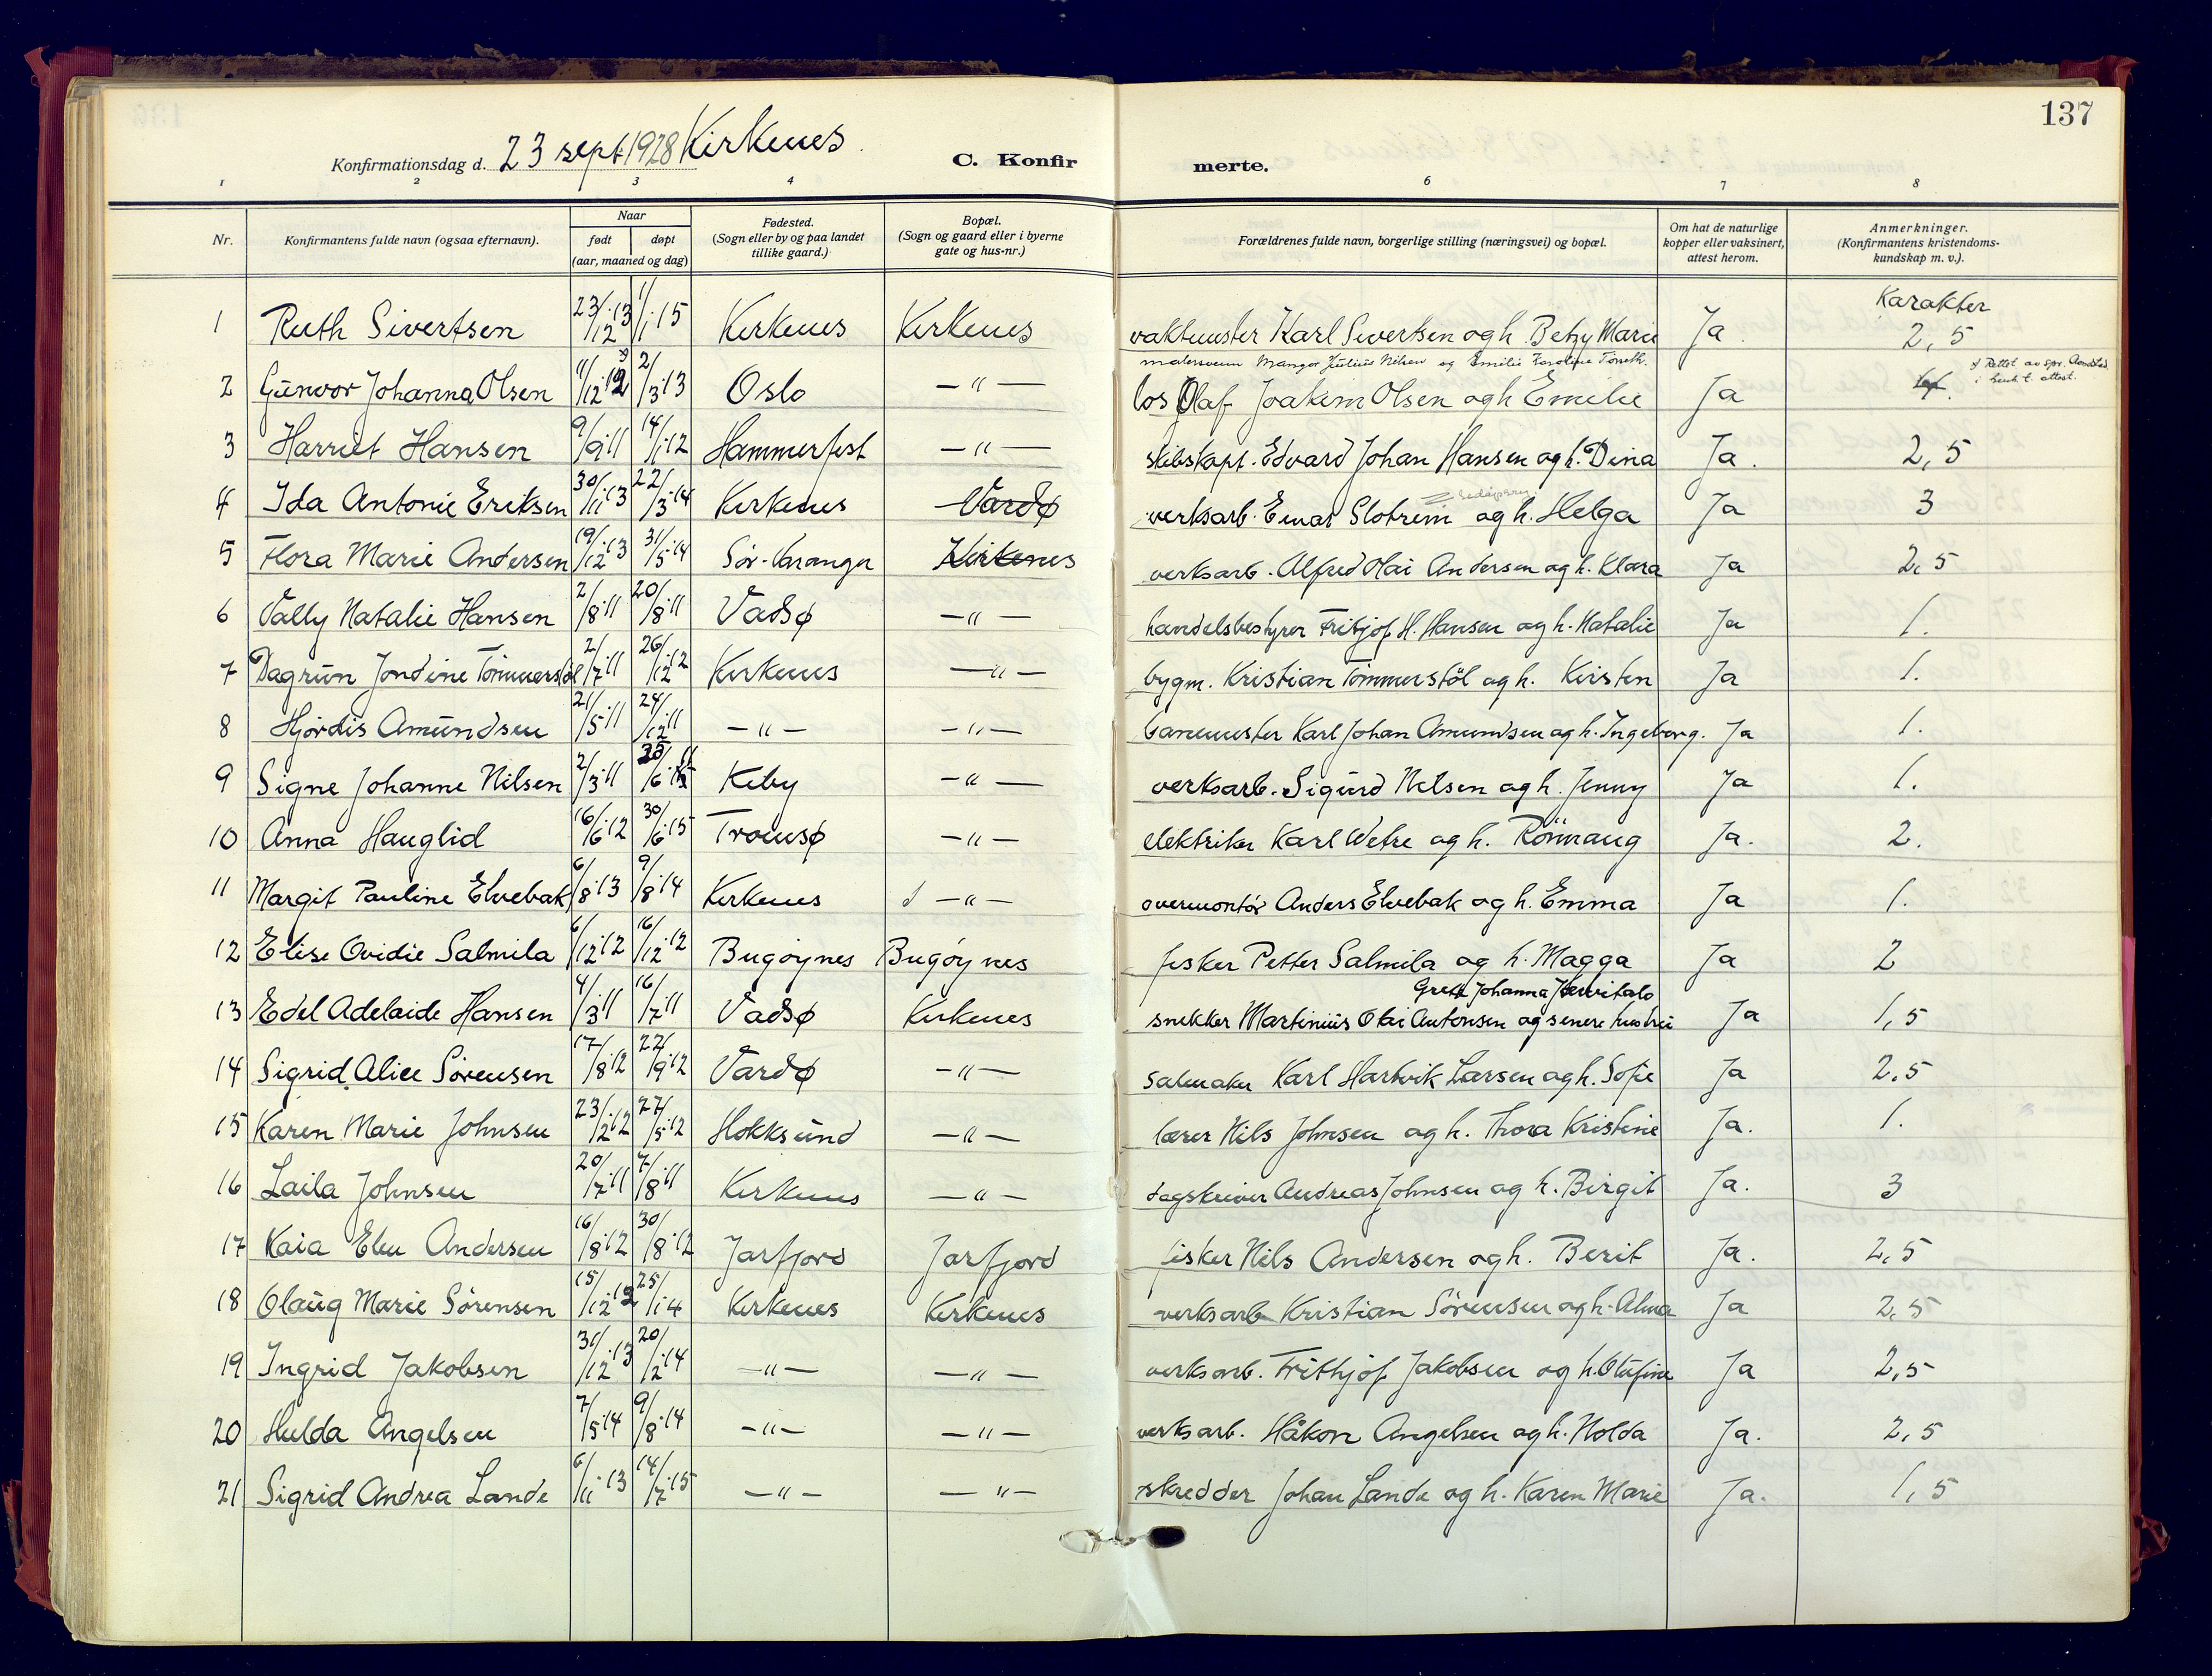 137
Konfirmationsdag d. 23 sept 1928 Kirkenes
C. Konfir merte.
1 2 3 4 6 7 8
Nr. Konfirmantens fulde navn (ogsaa efternavn). Naar født døpt (aar, maaned og dag) Fødested. (Sogn eller by og paa landet tillike gaard.) Bopæl. (Sogn og gaard eller i byerne gate og hus-nr.) Forældrenes fulde navn, borgerlige stilling (næringsvei) og bopæl. Om hat de naturlige kopper eller vaksinert, attest herom. Anmerkninger. (Konfirmantens kristendoms-kundskap m. v.).
Karakter
1 Ruth Sivertsen 23/12.13 1/1.15 Kirkenes Kirkenes vaktmester Karl Sivertsen og h. Betzy Marie Ja 2,5
malersvenn Mangor Julius Nilsen og Emilie Karoline
2 Gunvor Johanna Olsen 11/12.12 2/3.13 Oslo —"— los Olaf Joakim Olsen og h Emilie Ja
3 Harriet Hansen 9/9.11 14/1.12 Hammerfest —"— skibskapt. Edvard Johan Hansen og h. Dina Ja. 2,5
4 Ida Antonie Eriksen 30/11.13 22/3.14 Kirkenes Vardø verksarb. Einar Slotrem og h. Helga Ja 3
5 Flora Marie Andersen 19/12.13 31/5.14 Sør-Varanger Kirkenes verksarb. Alfred Olai Andersen og h. Klara Ja 2,5
6 Vally Natalie Hansen 2/8.11 20/8.11 Vadsø —"— handelsbestyrer Fritjof H. Hansen og h. Natalie Ja 1.
7 Dagrun Jondine Tømmerstøl 2/7.11 26/12.12 Kirkenes —"— bygm. Kristian Tømmerstøl og h. Kirsten Ja 1.
8 Hjørdis Amundsen 21/5.11 24/12.11 —"— —"— banemester Karl Johan Amundsen og h. Ingeborg. Ja 1.
9 Signe Johanne Nilsen 2/3.11 Kiby —"— verksarb. Sigurd Nilsen og h. Jenny Ja 1.
10 Anna Hauglid 16/6.12 30/6.15 Tromsø —"— elektriker Karl Wetre og h. Rønnaug Ja. 2.
11 Margit Pauline Elvebak 6/8.13 9/8.14 Kirkenes —"— overmontør Anders Elvebak og h. Emma Ja 1.
12 Elise Ovidie Salmila 6/12.12 16/12.12 Bugøynes Bugøynes fisker Petter Salmila og h. Magga Ja 2
Grete Johanna
13 Edel Adelaide Hansen 4/3.11 16/7.11 Vadsø Kirkenes snekker Martinius Olai Antonsen og senere hustru Ja 1,5
14 Sigrid Alice Sørensen 17/8.12 22/9.12 Vardø —"— salmaker Karl Hartvik Larsen og h. Sofie Ja 2,5
15 Karen Marie Johnsen 23/2.12 27/5.12 Hokksund —"— lærer Nils Johnsen og h. Thora Kristine Ja. 1.
16 Laila Johnsen 20/7.11 7/8.11 Kirkenes —"— dagskriver Andreas Johnsen og h. Birgit Ja. 3
17 Kaia Elen Andersen 16/8.12 30/8.12 Jarfjord Jarfjord fisker Nils Andersen og h. Berit Ja. 2,5
18 Olaug Marie Sørensen 15/12.12 25/1.14 Kirkenes Kirkenes verksarb Kristian Sørensen og h. Alma Ja 2,5
19 Ingrid Jakobsen 31/12.13 20/2.14 —"— —"— verksarb. Frithjof Jakobsen og h. Olufine Ja 2,5
20 Hulda Angelsen 7/5.14 9/8.14 —"— —"— verksarb. Håkon Angelsen og h. Holda Ja. 2,5
21 Sigrid Andrea Lande 6/11.13 14/7.15 —"— —"— skredder Johan Lande og h. Karen Marie Ja. 1,5